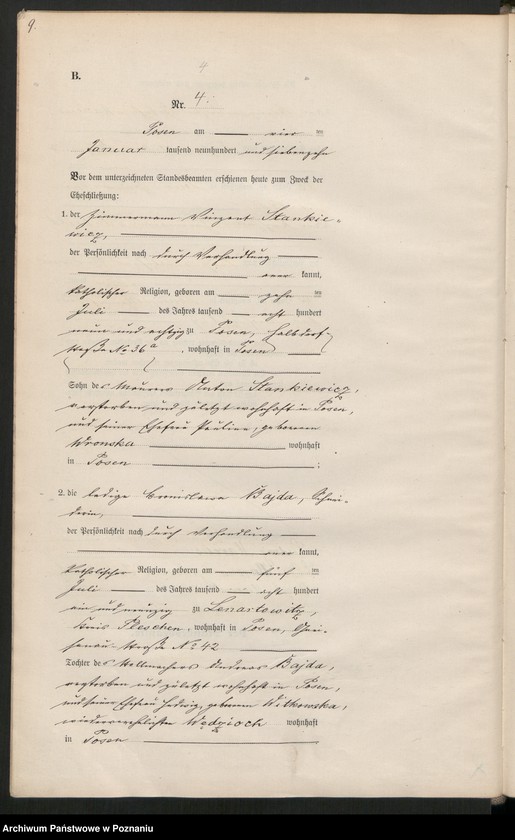 9.
4
B.
Nr. 4.
Posen am vier ten
Januar tausend neunhundert und siebenzehn
Vor dem unterzeichneten Standesbeamten erschienen heute zum Zweck der
Eheschließung:
1. der Zimmermann Vinzent Stankie-
wicz,
der Persönlichkeit nach durch Verhandlung
aner kannt,
katholischer Religion, geboren am zehn ten
Juli des Jahres tausend acht hundert
neun und achtzig zu Posen, Halbdorf-
straße No 36a, wohnhaft in Posen
Sohn des Maurers Anton Stankiewicz,
verstorben und zuletzt wohnhaft in Posen,
und seiner Ehefrau Pauline, geborenen
Wronska wohnhaft
in Posen ;
2. die ledige Bronislawa Bajda, Schnei-
derin,
der Persönlichkeit nach durch Verhandlung
aner kannt,
katholischer Religion, geboren am fünf ten
Juli des Jahres tausend acht hundert
ein und neunzig zu Lenartowitz,
Kreis Pleschen, wohnhaft in Posen,
straße No 42
Tochter des Stellmachers Andreas Bajda,
verstorben und zuletzt wohnhaft in Posen,
und seiner Ehefrau Hedwig, geborenen Witkowska,
wiederverehelichten Wędzioch wohnhaft
in Posen
Archiwum Państwowe w Poznaniu